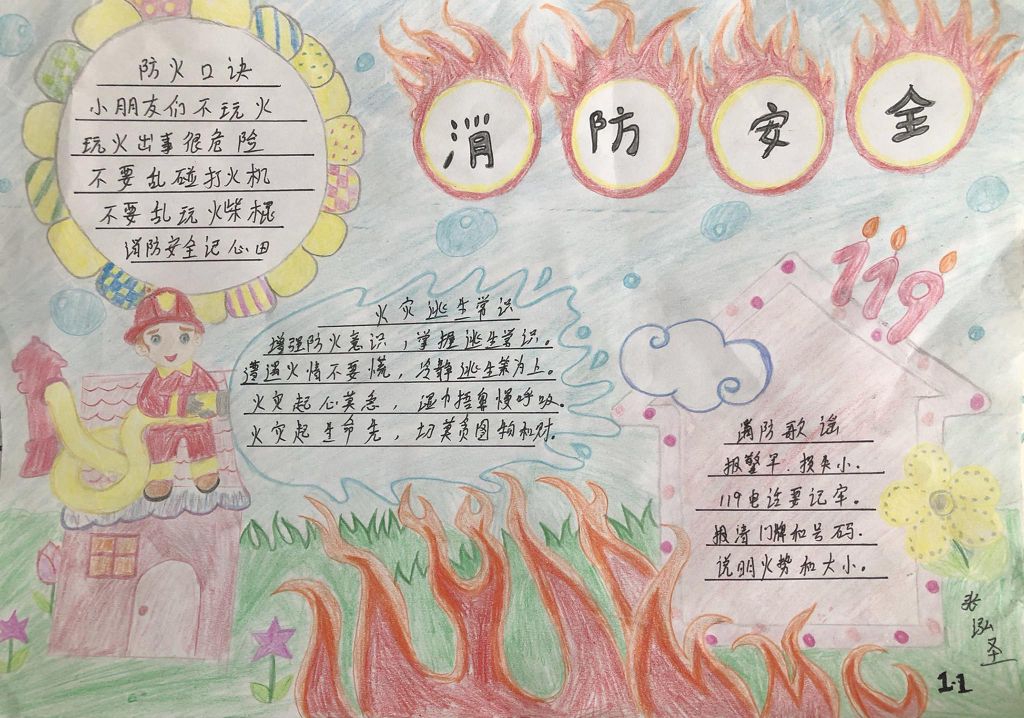 消防安全
防火口诀
小朋友们不玩火
玩火出事很危险
不要乱碰打火机
不要乱玩火柴棍
消防安全记心田
119
火灾逃生常识
增强防火意识，掌握逃生常识。
遭遇火情不要慌，冷静逃生策为上。
火灾起心莫急，湿巾捂鼻慢呼吸。
火灾起生命先，切莫贪图物和财。
消防歌谣
报警早．损失小。
119电话要记牢。
报清门牌和号码．
说明火势和大小。
张泓圣
1.1